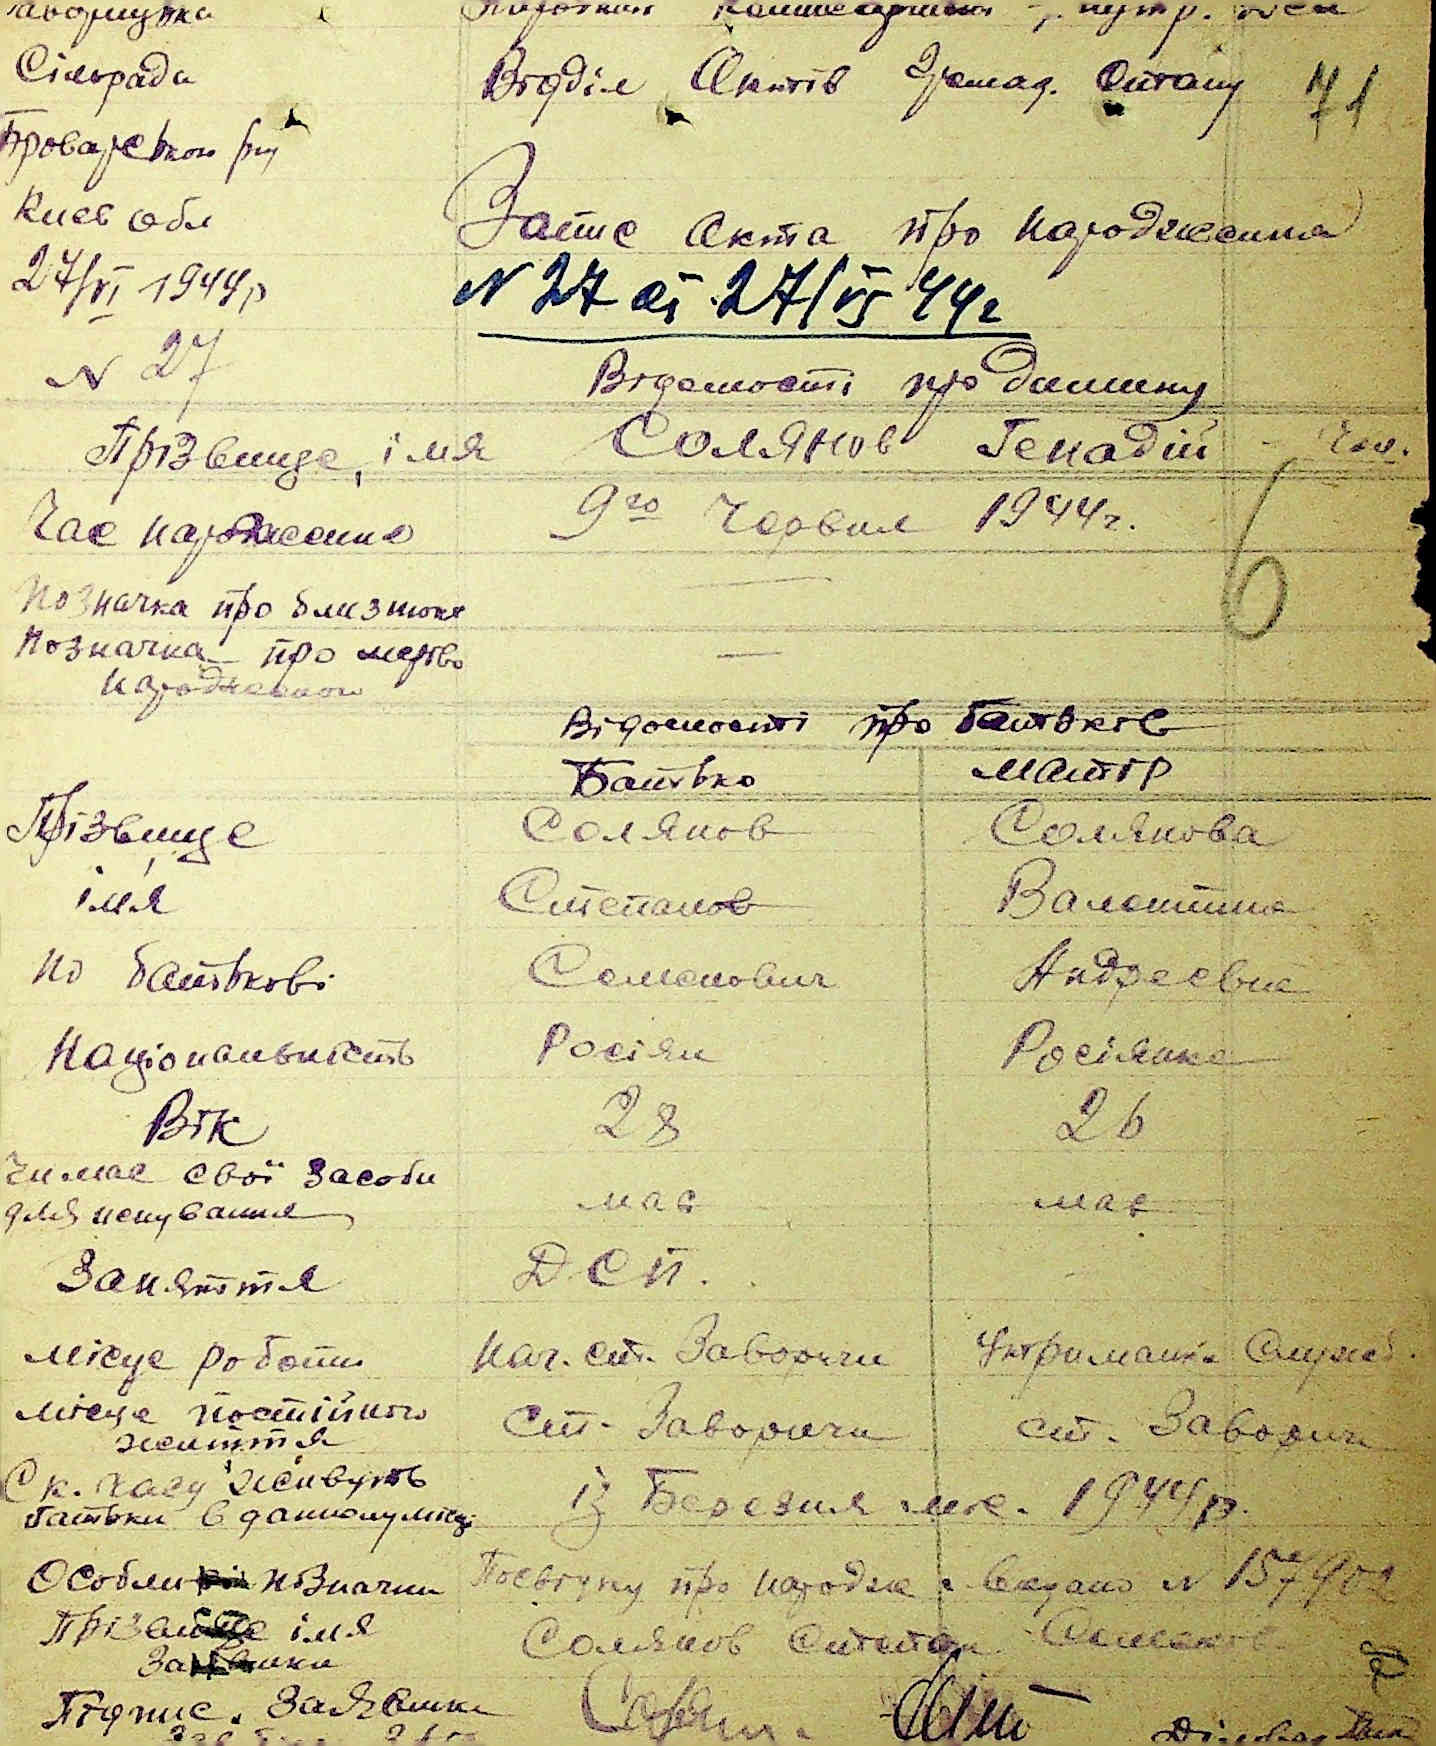 Сільрада Відділ Актів Громад. Стану 71
Броварського р-ну
Киев обл Запис Акта про народження
27/VI 1944р N 27 от 27/VI 44г
N 27 Відомості про дитину
Прізвище, імя Солянов Генадій - чол.
Час народження 9го Червня 1944г.
6
Позначка про близнят —
Позначка про мертво —
народженого
Відомості про батьків
Батько Матір
Прізвище Солянов Солянова
ім'я Степанов Валентина
по батькові Семенович Андреевна
Національність Росіян Росіянка
Вік 28 26
Чи має свої засоби
для існування має має
Заняття ДСП.
місце роботи Нач. ст. Заворичи Утриманка Служб.
місце постійного
життя ст. Заворичи ст. Заворичи
Ск. часу живуть
батьки в данному місці із Березня м-ця. 1944р.
Особливі позначки Посвідку про народж. видано N 157902
Прізвище імя
Заявника Солянов Степан Семенов
Підпис. Заявника